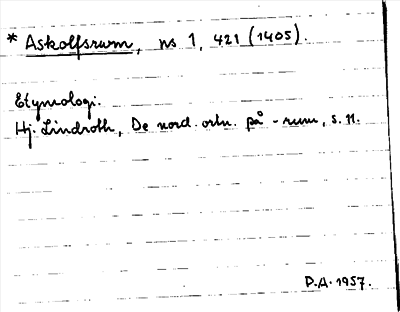 * Askolfsrum, ns 1, 421 (1405).
Etymologi.
Hj. Lindroth, De nord. ortn. på -rum, s. 11.
P.A. 1957.